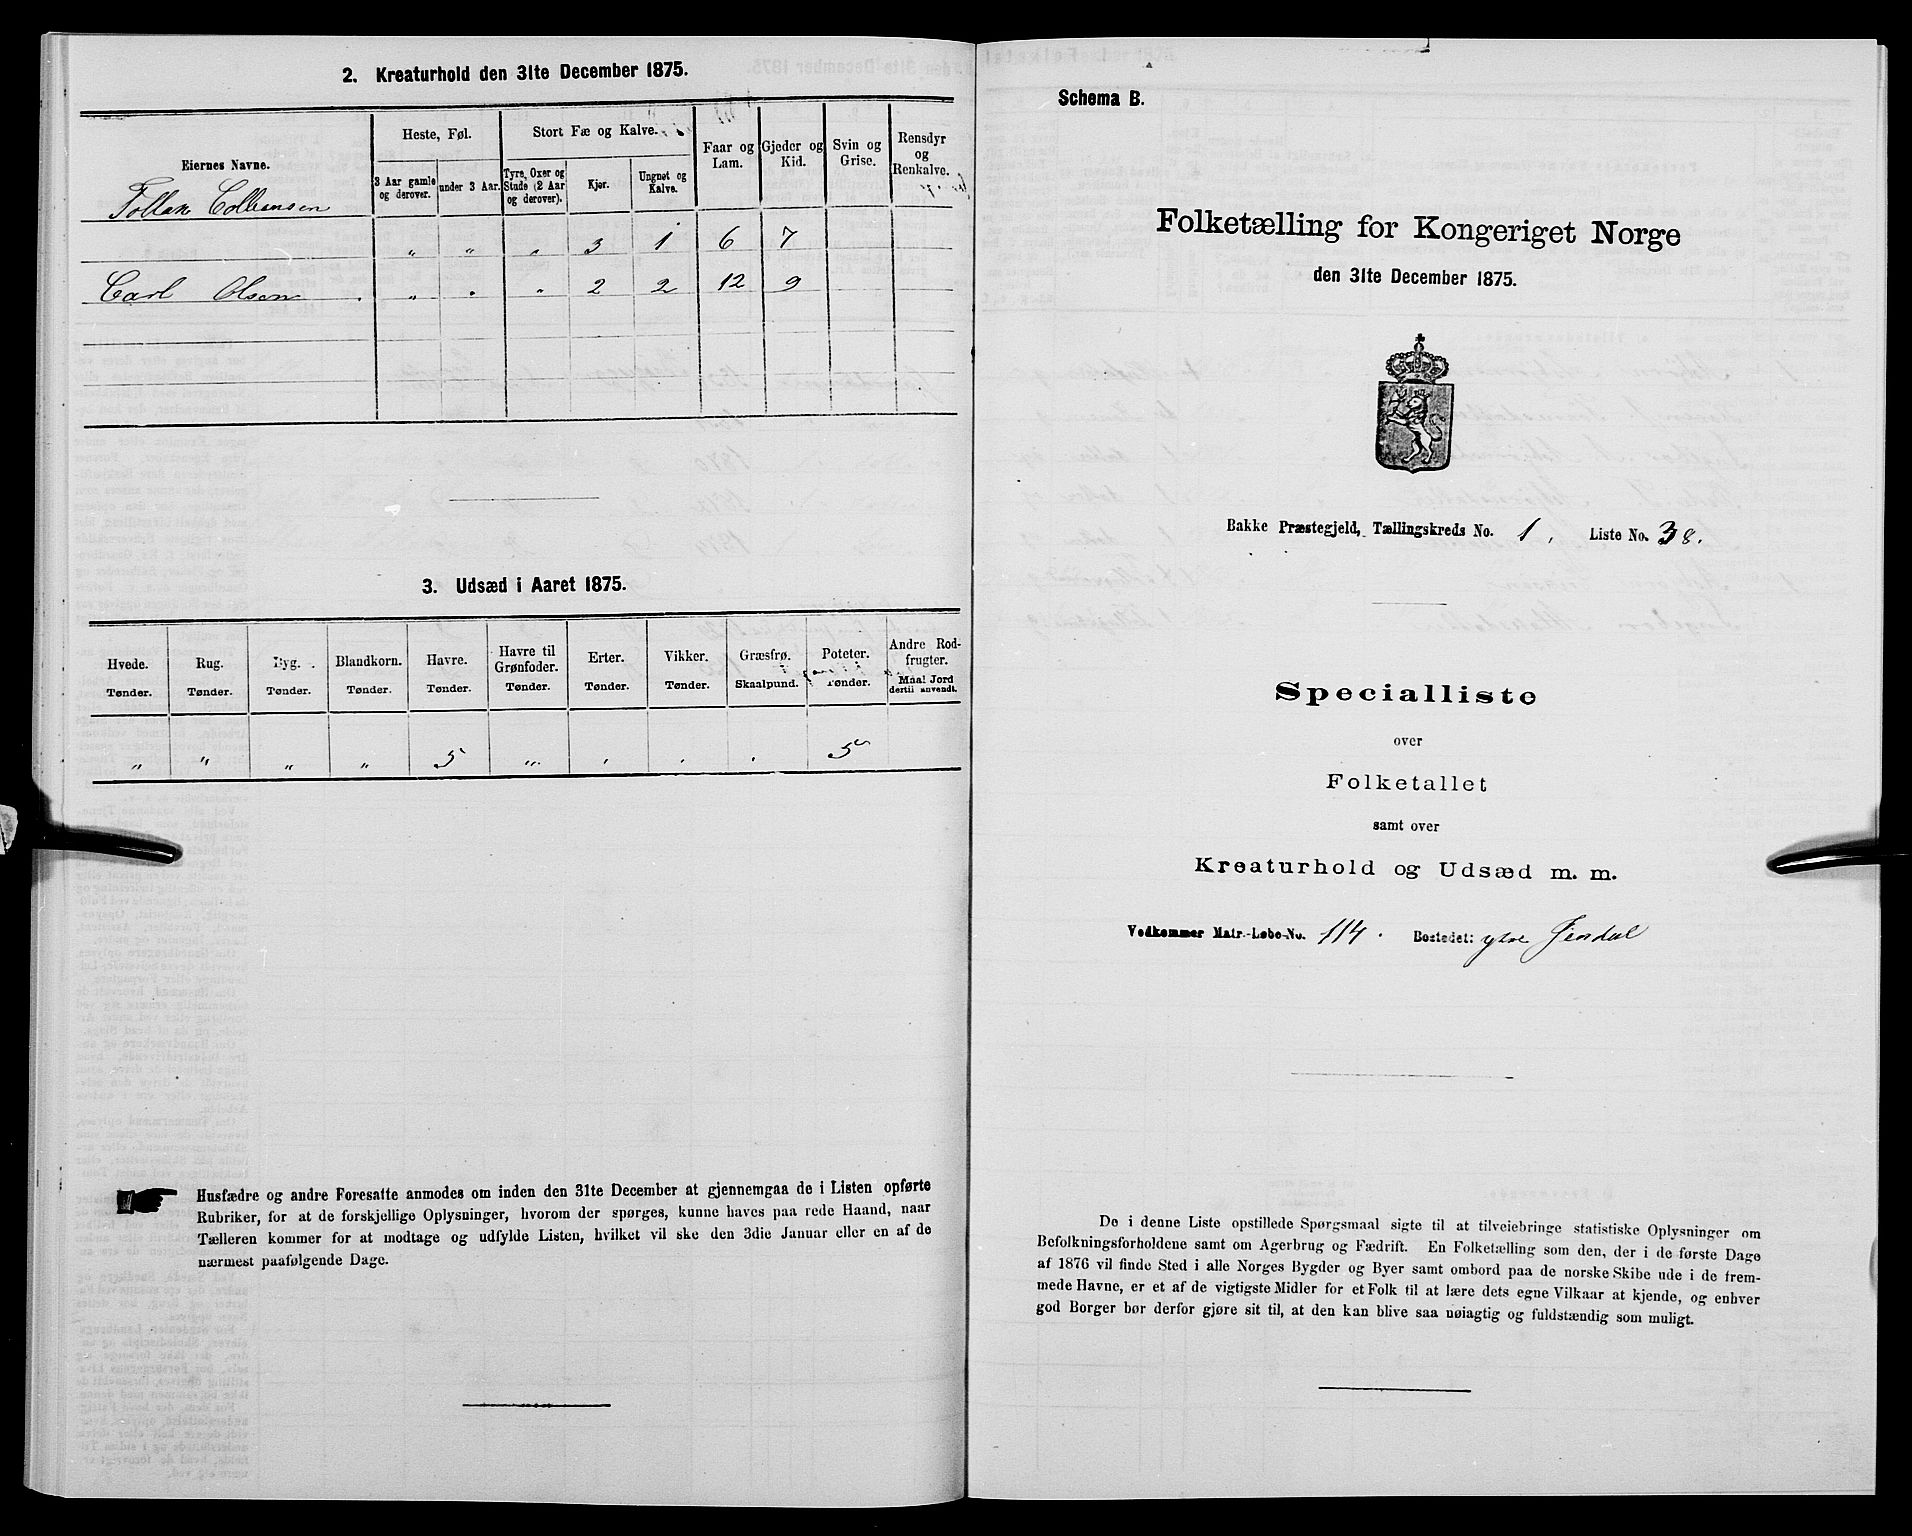 2. Kreaturhold den 31te December 1875.
Eiernes Navne.
Heste, Føl.
Stort Fæ og Kalve.
Faar og Lam.
Gjeder og Kid.
Svin og Grise.
Rensdyr og Renkalve.
3 Aar gamle og derover.
under 3 Aar.
Tyre, Oxer og Stude (2 Aar og derover).
Kjør.
Ungnøt og Kalve.
Tollak
" " " 3 1 6 7
Carl Olsen " " " 2 2 12 9
3. Udsæd i Aaret 1875.
Hvede. Rug. Byg. Blandkorn. Havre. Havre til Grønfoder. Erter. Vikker. Græsfrø. Poteter. Andre Rodfrugter.
Tønder. Tønder. Tønder. Tønder. Tønder. Tønder. Tønder. Tønder. Skaalpund. Tønder. Maal Jord dertil anvendt.
" " " " 5 " " " " 5
Husfædre og andre Foresatte anmodes om inden den 31te December at gjennemgaa de i Listen opførte
Rubriker, for at de forskjellige Oplysninger, hvorom der spørges, kunne haves paa rede Haand, naar
Tælleren kommer for at modtage og udfylde Listen, hvilket vil ske den 3die Januar eller en af de
nærmest paafølgende Dage.
Schema B.
Folketælling for Kongeriget Norge
den 31te December 1875.
Bakke Præstegjeld, Tællingskreds No. 1, Liste No. 38.
Specialliste
over
Folketallet
samt over
Kreaturhold og Udsæd m. m.
Vedkommer Matr.-Løbe-No. 114. Bostedet: ytre
De i denne Liste opstillede Spørgsmaal sigte til at tilveiebringe statistiske Oplysninger om
Befolkningsforholdene samt om Agerbrug og Fædrift. En Folketælling som den, der i de første Dage
af 1876 vil finde Sted i alle Norges Bygder og Byer samt ombord paa de norske Skibe ude i de frem-
mede Havne, er et af de vigtigste Midler for et Folk til at lære dets egne Vilkaar at kjende, og enhver
god Borger bør derfor gjøre sit til, at den kan blive saa nøiagtig og fuldstændig som muligt.